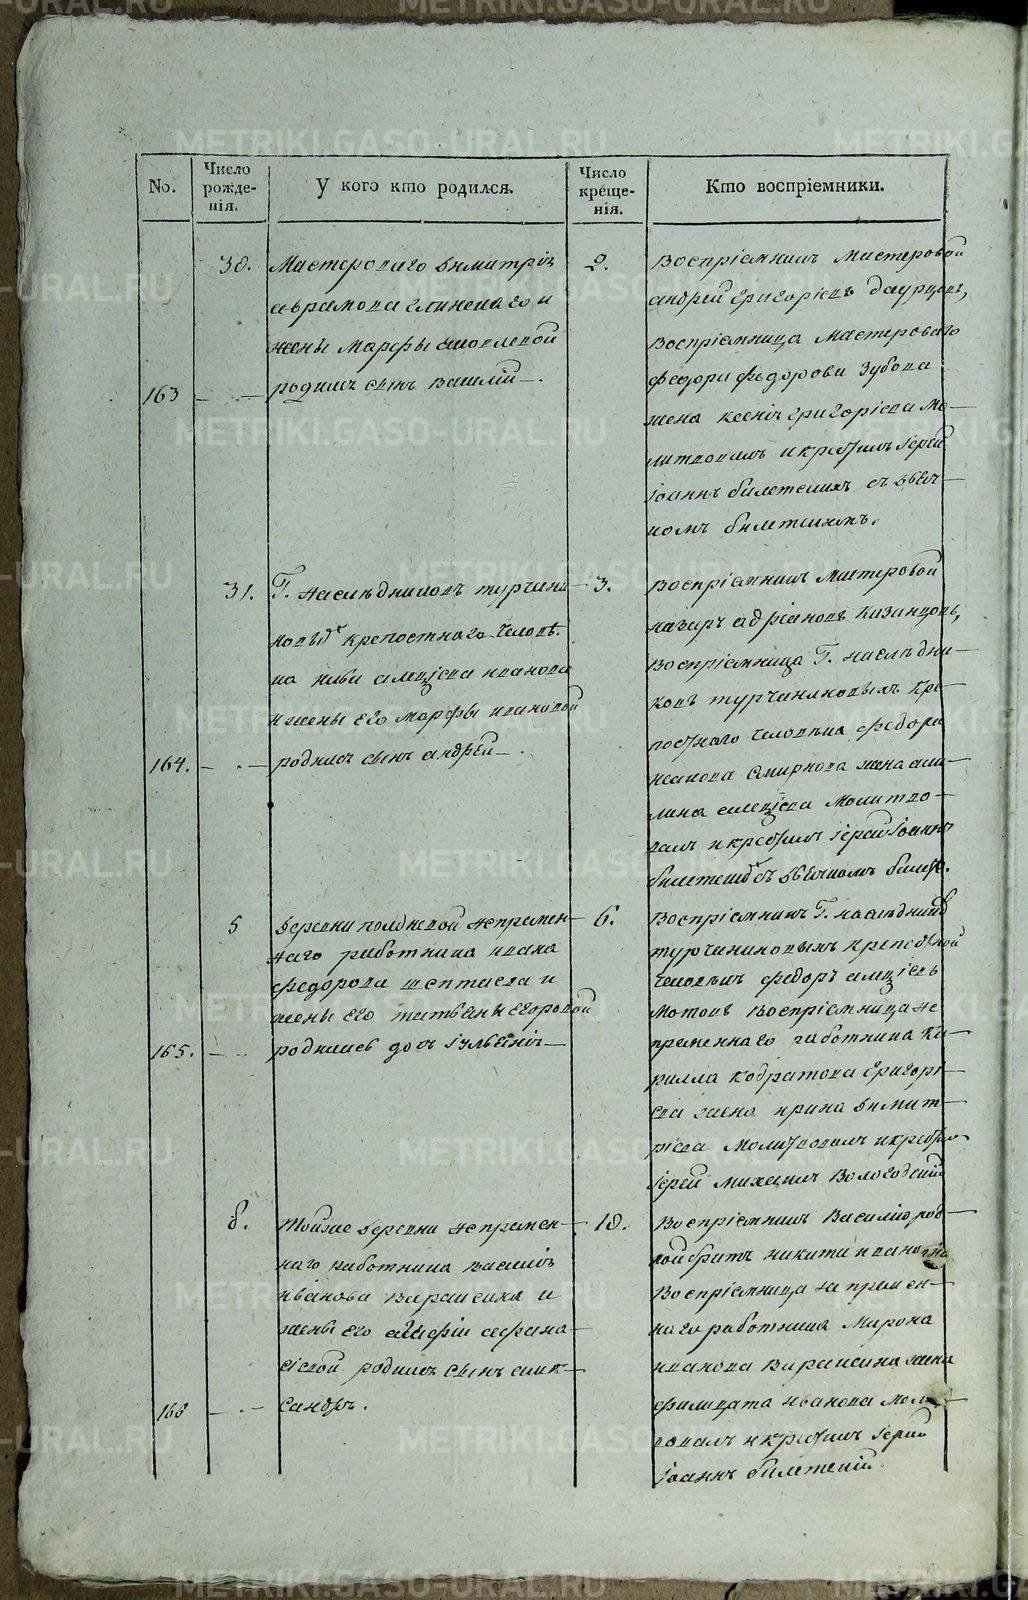 No.
Число рожденія.
У кого кто родился.
Число крещенія.
Кто воспріемники.
163
30.
Мастероваго Димитрія
Аврамова Глинскаго и
жены Марфы
родился сынъ Василій
2.
Воспріемникъ мастеровой
Андрей Григоріевъ
Воспріемница мастероваго
Федора Федорова Зубова
жена Ксенія Григоріева мо-
литвовалъ и крестилъ Іерей
Іоаннъ
164.
31.
Г. наслѣдниковъ Турчани-
новыхъ крепостнаго челове-
ка Алексіева Иванова
и жены его Марфы Ивановой
родился сынъ Андрей
3.
Воспріемникъ Мастеровой
Назаръ Адріановъ Казанцовъ,
Воспріемница Г. наслѣдни-
ковъ Турчаниновыхъ кре-
постнаго человѣка Федора
Иванова Смирнова жена Аку-
лина Алексіева Молитво-
валъ и крестилъ Іерей Іоаннъ
165.
5
Деревни Полдневой непремен-
наго работника Ивана
Федорова и
жены его Татьяны Егоровой
родилась дочь Іуліанія
6.
Воспріемникъ Г. наслѣдниковъ
Турчаниновыхъ крепостной
человѣкъ Федоръ Алексіевъ
Воспріемница не-
пременнаго работника Ки-
рилла Кодратова Григорі-
ева жена Ирина Димит-
ріева Молитвовалъ и крестилъ
Іерей Михаилъ Вологодскій
166
8.
Той же деревни непремен-
наго работника Василія
Иванова Вараксина и
жены его Афана-
сіевой родился сынъ Алек-
сандръ.
10.
Воспріемникъ Василію род-
ной братъ Никита Ивановъ
Воспріемница непремен-
наго работника Мирона
Иванова Вараксина жена
Филицата Иванова
и крестилъ Іерей
Іоаннъ
METRIKI.GASO-URAL.RU